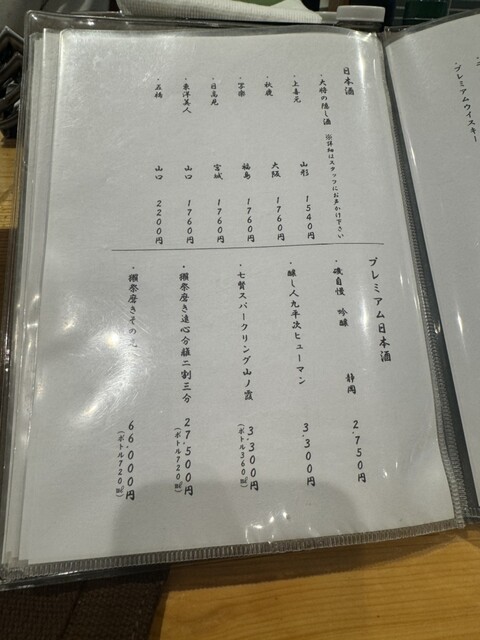 日本酒
・大将の隠し酒 ※詳細はスタッフにお声かけ下さい
・上喜元 山形 1540円
・秋鹿 大阪 1760円
・写楽 福島 1760円
・日高見 宮城 1760円
・東洋美人 山口 1760円
・五橋 山口 2200円
プレミアム日本酒
・磯自慢 吟醸 静岡 2,750円
・醸し人九平次ヒューマン 3,300円
・七賢スパークリング山ノ霞 3,300円
(ボトル360㎖)
・獺祭磨き遠心分離二割三分 27,500円
(ボトル720㎖)
・獺祭磨きその先 66,000円
(ボトル720㎖)
・プレミアムウイスキー